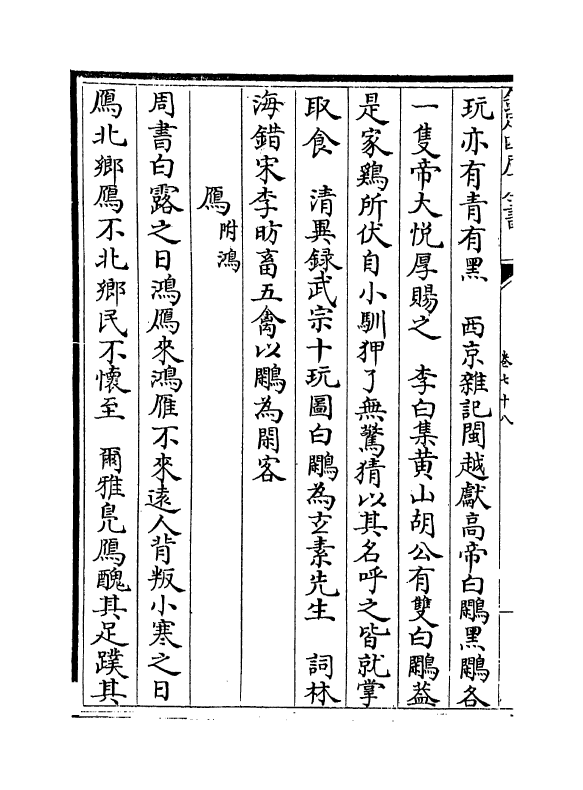 欽定四庫全書
卷七十八
玩亦有青有黑　西京雜記閩越獻高帝白鷴黑鷴各
一隻帝大悦厚賜之　李白集黄山胡公有雙白鷴葢
是家鷄所伏自小馴狎了無驚猜以其名呼之皆就掌
取食　清異録武宗十玩圖白鷴為玄素先生　詞林
海錯宋李昉畜五禽以鷴為閑客
鴈附鴻
周書白露之日鴻鴈來鴻雁不來逺人背叛小寒之日
鴈北鄉鴈不北鄉民不懷至　爾雅鳧鴈醜其足蹼其